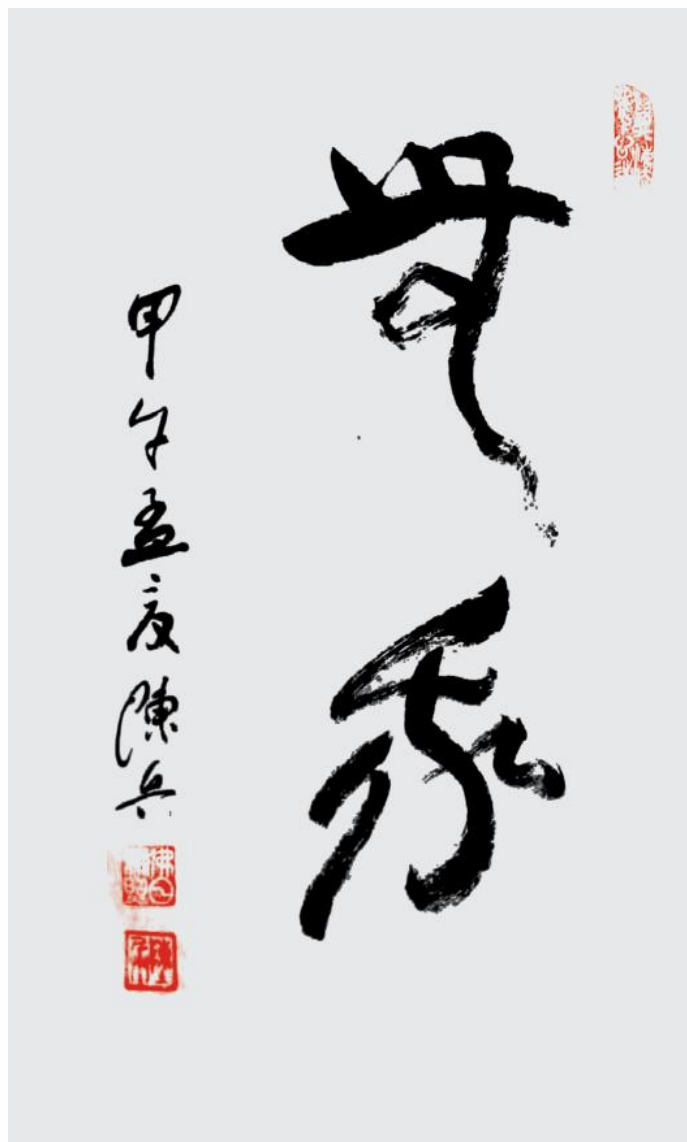 無我
甲午孟夏陳兵